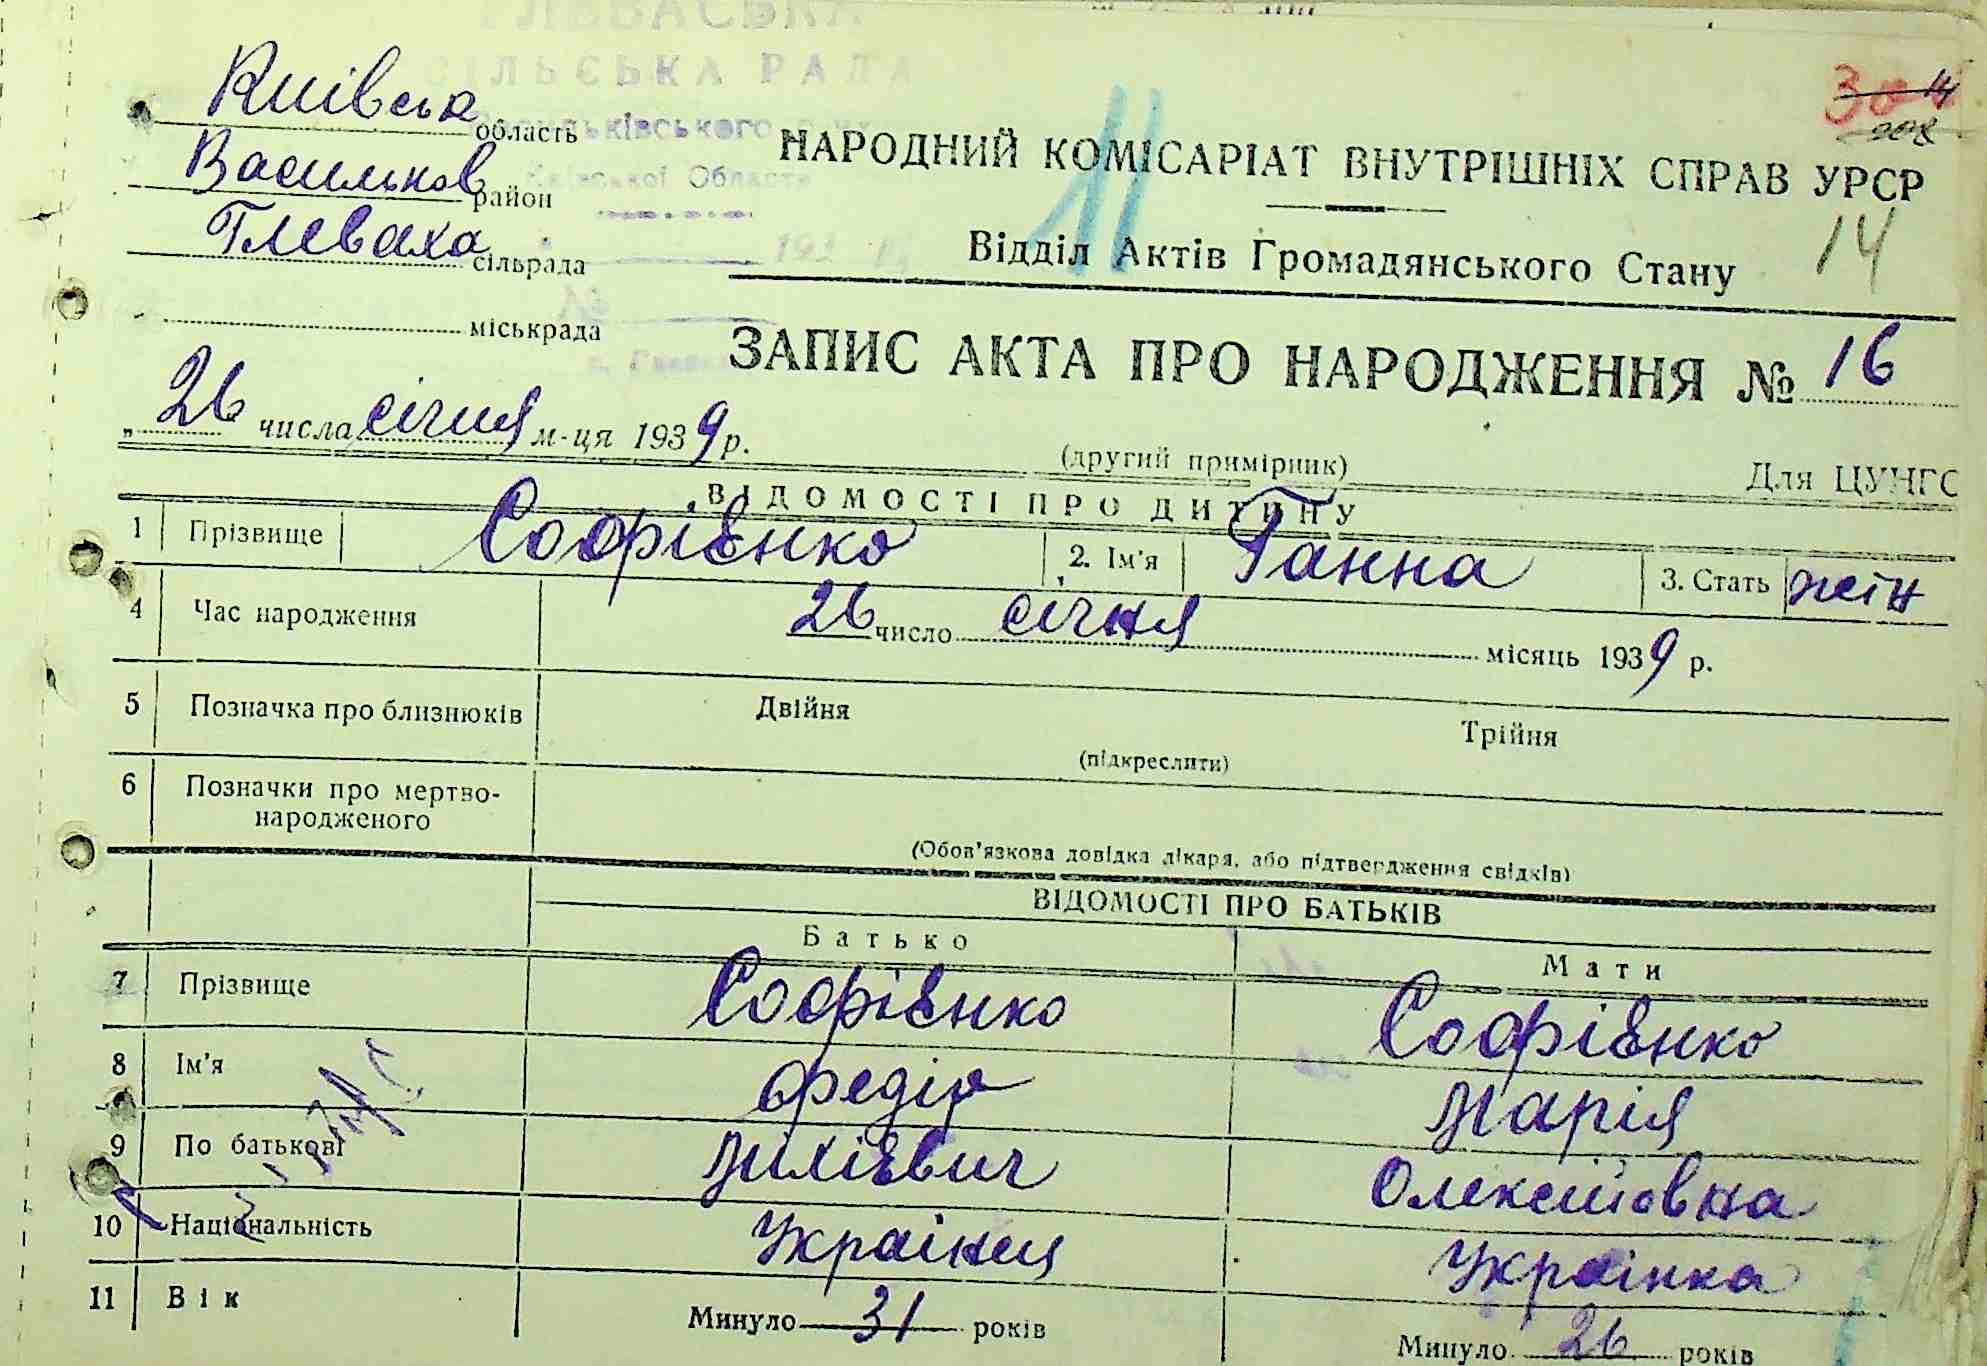 СІЛЬСЬКА РАДА
Київськ область
Васильков район
Київської Області
Глеваха сільрада
міськрада
11
НАРОДНИЙ КОМІСАРІАТ ВНУТРІШНІХ СПРАВ УРСР
Відділ Актів Громадянського Стану 14
ЗАПИС АКТА ПРО НАРОДЖЕННЯ № 16
„ 26 числа січня м-ця 1939 р.
(другий примірник) Для ЦУНГО
ВІДОМОСТІ ПРО ДИТИНУ
1 Прізвище Софієнко 2. Ім'я Ганна 3. Стать жін
4 Час народження 26 число січня місяць 1939 р.
5 Позначка про близнюків Двійня Трійня
(підкреслити)
6 Позначки про мертво-
народженого
(Обов'язкова довідка лікаря, або підтвердження свідків)
ВІДОМОСТІ ПРО БАТЬКІВ
Батько Мати
7 Прізвище Софієнко Софієнко
8 Ім'я Федір Марія
9 По батькові Михієвич Олексіївна
10 Національність Українец Українка
11 Вік Минуло 31 років Минуло 26 років